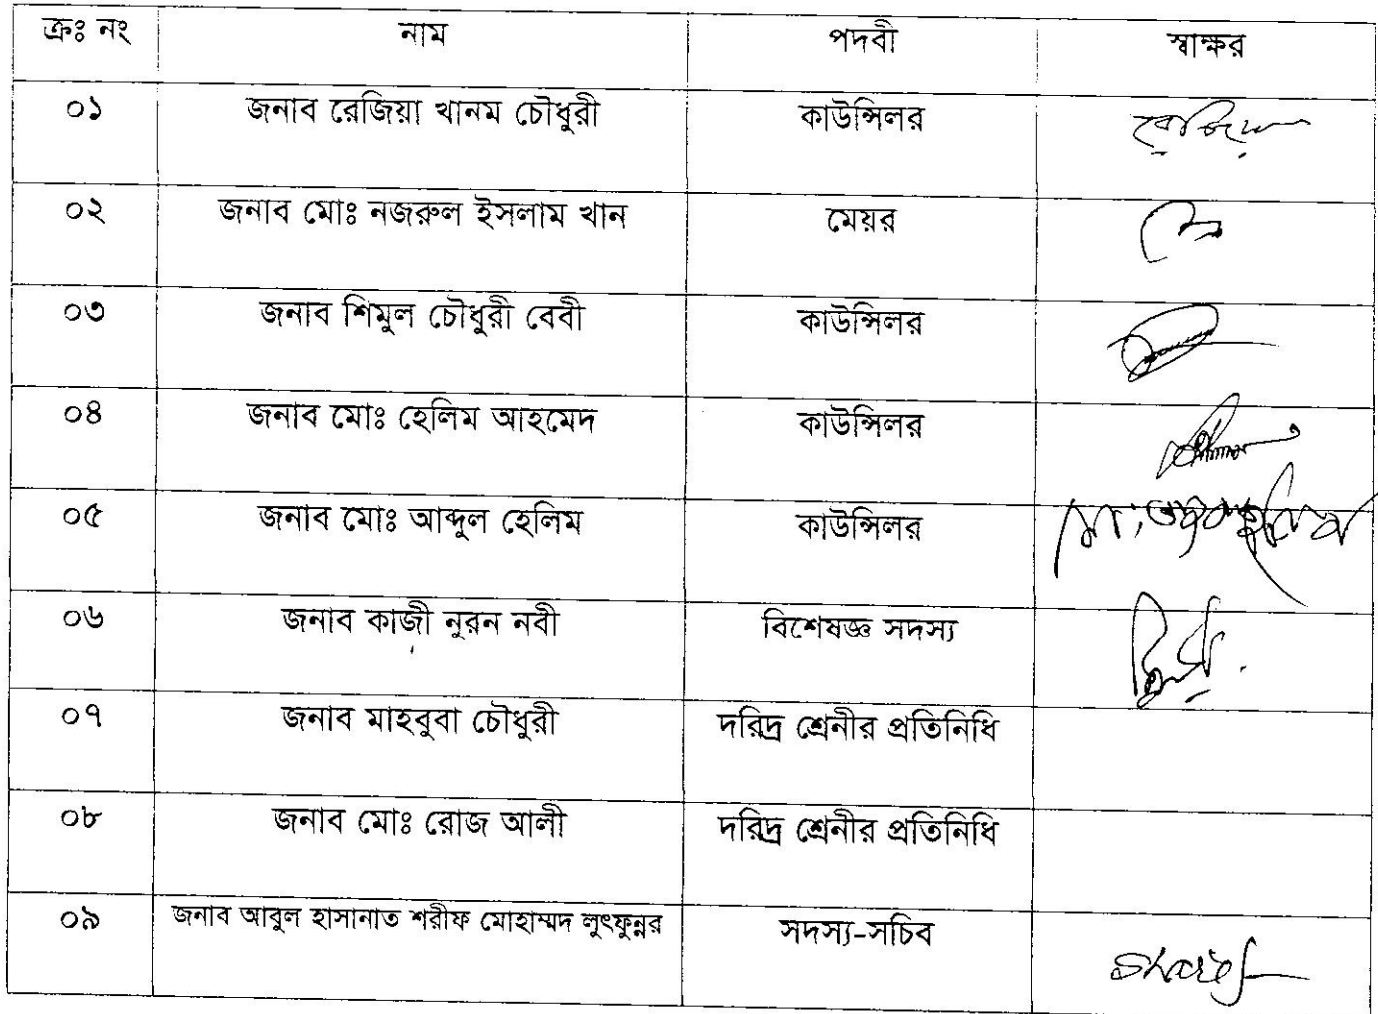 ক্রঃ নং নাম পদবী স্বাক্ষর
০১ জনাব রেজিয়া খানম চৌধুরী কাউন্সিলর রেজিয়া
০২ জনাব মোঃ নজরুল ইসলাম খান মেয়র
০৩ জনাব শিমুল চৌধুরী বেবী কাউন্সিলর
০৪ জনাব মোঃ হেলিম আহমেদ কাউন্সিলর
০৫ জনাব মোঃ আব্দুল হেলিম কাউন্সিলর
০৬ জনাব কাজী নুরন নবী বিশেষজ্ঞ সদস্য
০৭ জনাব মাহবুবা চৌধুরী দরিদ্র শ্রেনীর প্রতিনিধি
০৮ জনাব মোঃ রোজ আলী দরিদ্র শ্রেনীর প্রতিনিধি
০৯ জনাব আবুল হাসানাত শরীফ মোহাম্মদ লুৎফুন্নর সদস্য-সচিব